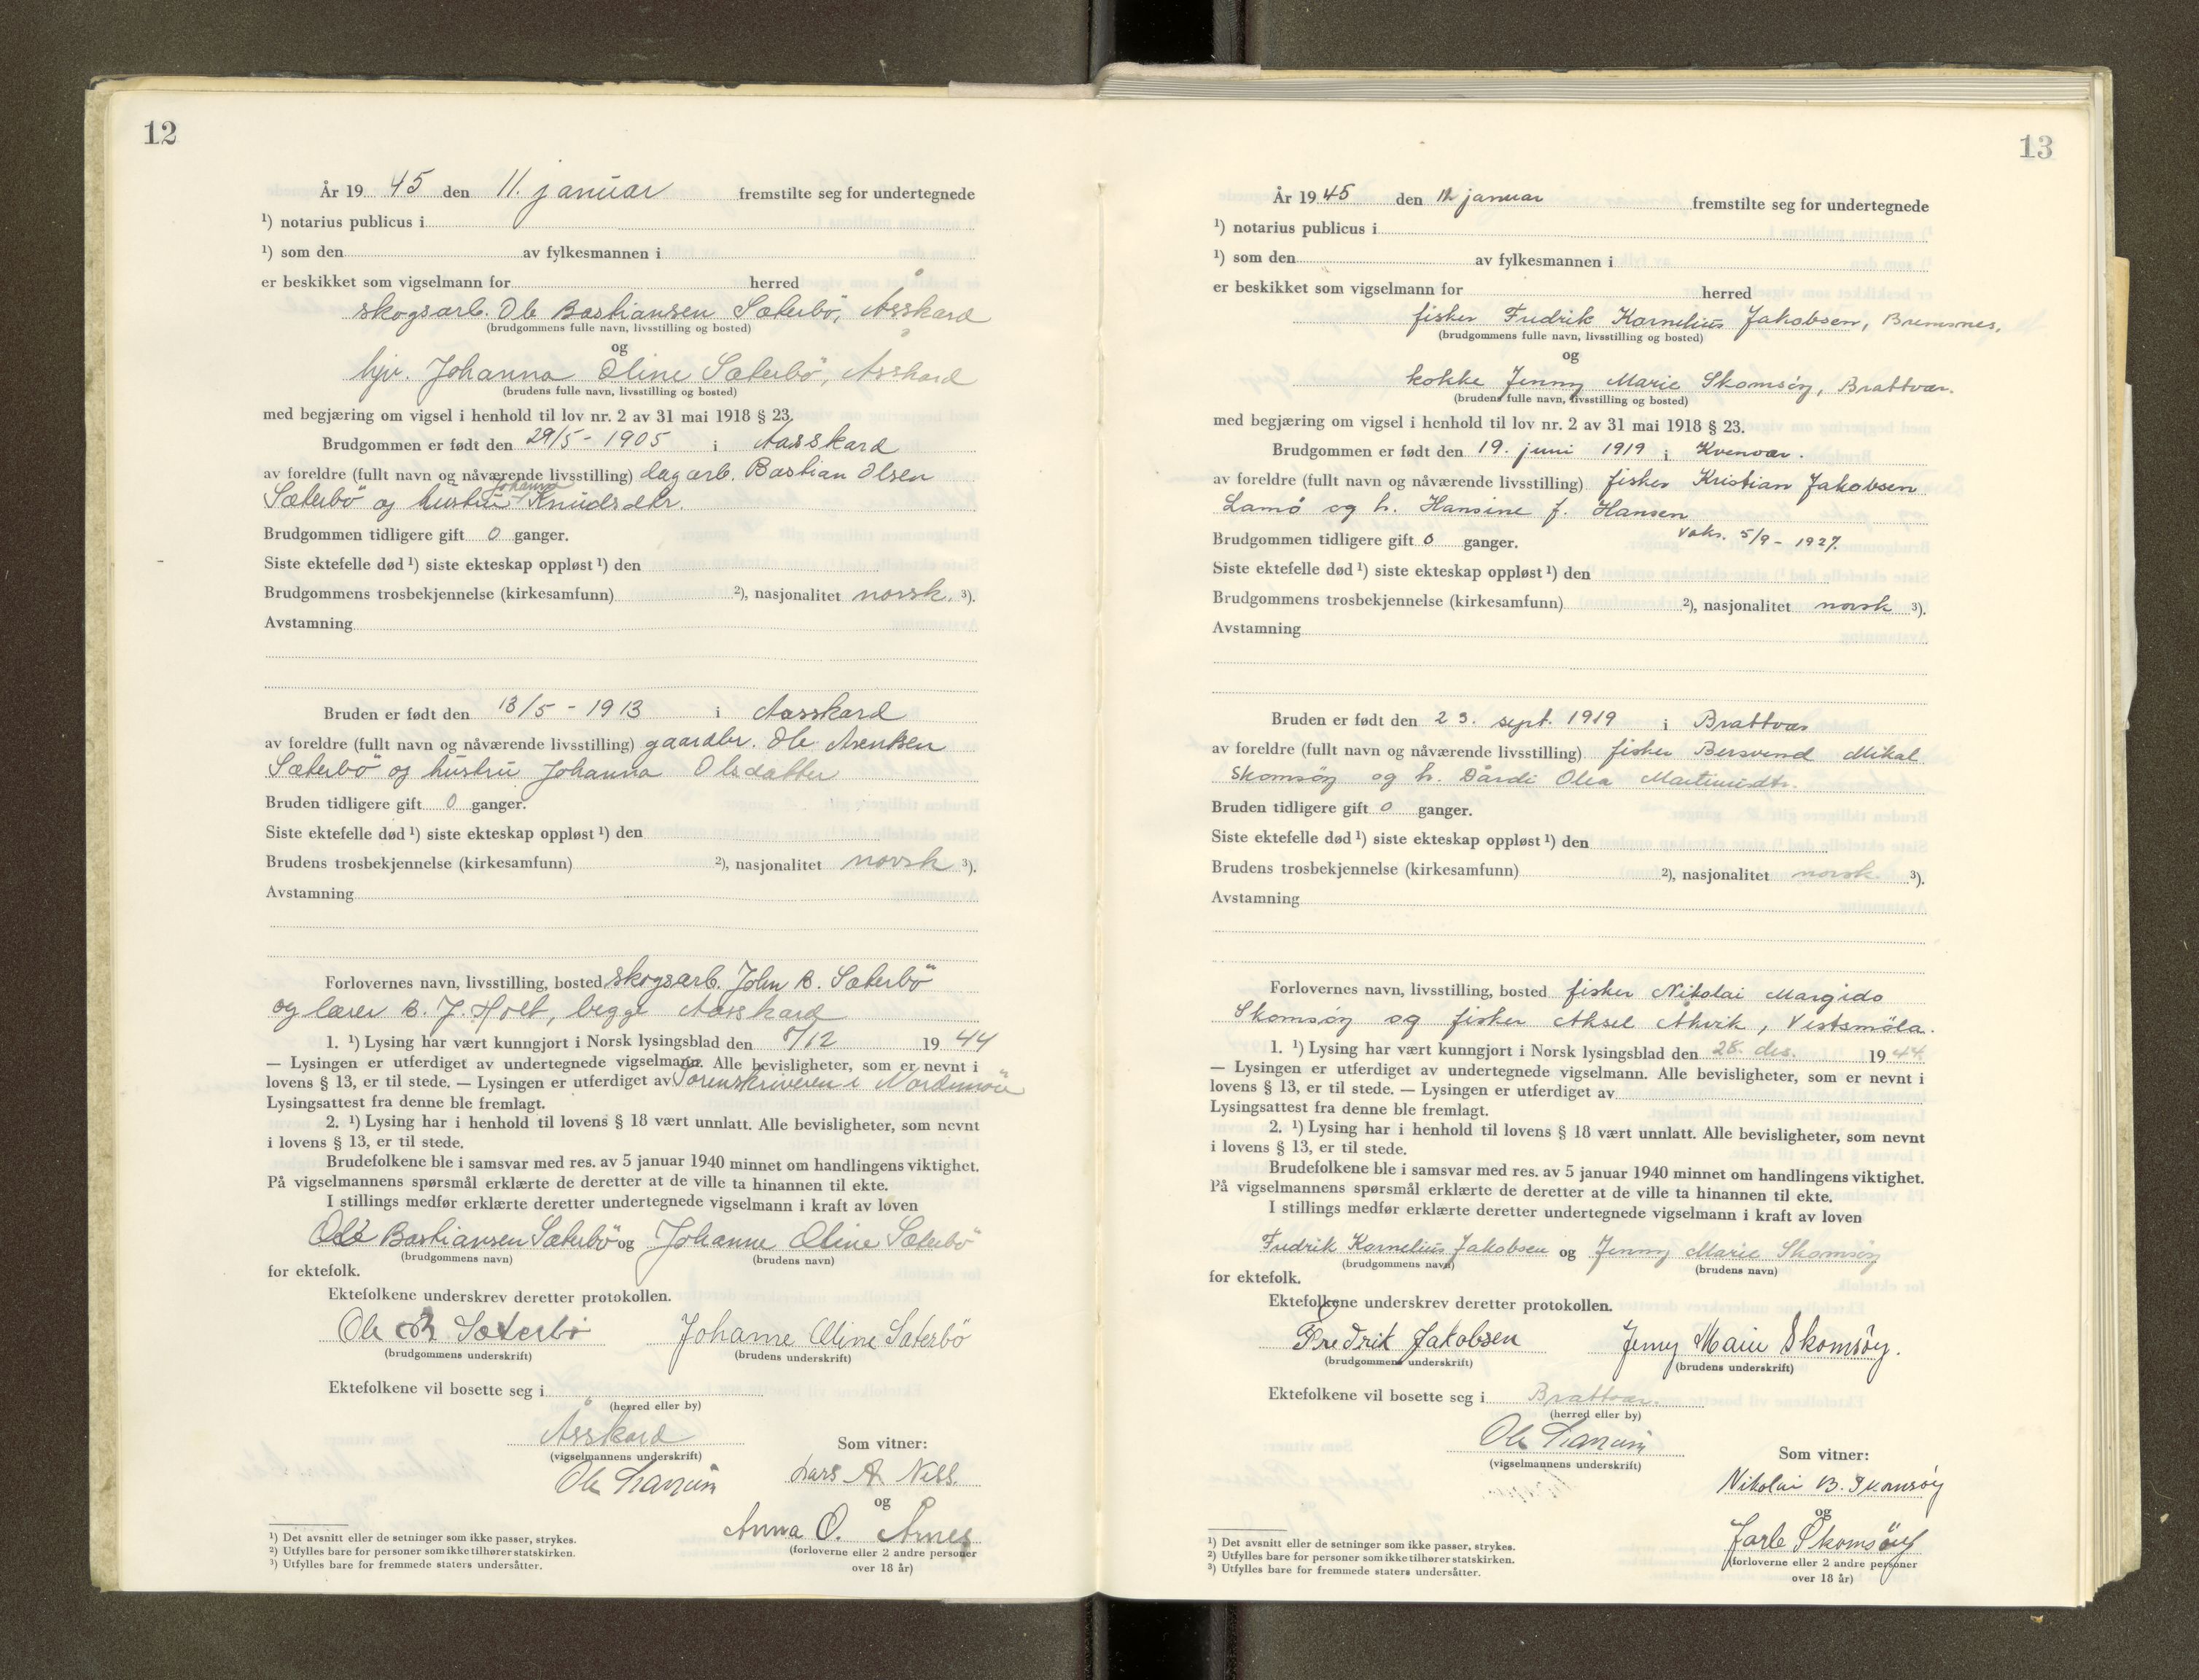 12
År 19 45 den 11. januar fremstilte seg for undertegnede
¹) notarius publicus i
¹) som den av fylkesmannen i
er beskikket som vigselmann for herred
skogsarb. Ole Bastiansen Sæterbö, Åsskard
(brudgommens fulle navn, livsstilling og bosted)
og
hjv. Johanna Oline Sæterbö, Åsskard
(brudens fulle navn, livsstilling og bosted)
med begjæring om vigsel i henhold til lov nr. 2 av 31 mai 1918 § 23.
Brudgommen er født den 29/5 - 1905 i Aasskard
av foreldre (fullt navn og nåværende livsstilling) dagarb. Bastian Olsen
Johanna
Sæterbö og hustru Knudsdtr.
Brudgommen tidligere gift 0 ganger.
Siste ektefelle død ¹) siste ekteskap oppløst ¹) den
Brudgommens trosbekjennelse (kirkesamfunn) ²), nasjonalitet norsk. ³).
Avstamning
Bruden er født den 13/5 - 1913 i Aasskard
av foreldre (fullt navn og nåværende livsstilling) gaardbr. Ole Arentsen
Sæterbö og hustru Johanna Olsdatter
Bruden tidligere gift 0 ganger.
Siste ektefelle død ¹) siste ekteskap oppløst ¹) den
Brudens trosbekjennelse (kirkesamfunn) ²), nasjonalitet norsk ³).
Avstamning
Forlovernes navn, livsstilling, bosted skogsarb. John B. Sæterbö
og lærer B. J. Holt, begge Aasskard
1. ¹) Lysing har vært kunngjort i Norsk lysingsblad den 8/12 19 44
— Lysingen er utferdiget av undertegnede vigselmann. Alle bevisligheter, som er nevnt i
lovens § 13, er til stede. — Lysingen er utferdiget av Sorenskriveren i Nordmöre
Lysingsattest fra denne ble fremlagt.
2. ¹) Lysing har i henhold til lovens § 18 vært unnlatt. Alle bevisligheter, som nevnt
i lovens § 13, er til stede.
Brudefolkene ble i samsvar med res. av 5 januar 1940 minnet om handlingens viktighet.
På vigselmannens spørsmål erklærte de deretter at de ville ta hinannen til ekte.
I stillings medfør erklærte deretter undertegnede vigselmann i kraft av loven
Ole Bastiansen Sæterbö og Johanne Oline Sæterbö
(brudgommens navn) (brudens navn)
for ektefolk.
Ektefolkene underskrev deretter protokollen.
Ole B Sæterbö Johanne Oline Sæterbö
(brudgommens underskrift) (brudens underskrift)
Ektefolkene vil bosette seg i
(herred eller by)
Åsskard Som vitner:
(vigselmannens underskrift)
Ole Lars A Ness.
og
Anna O. Årnes
(forloverne eller 2 andre personer
over 18 år)
¹) Det avsnitt eller de setninger som ikke passer, strykes.
²) Utfylles bare for personer som ikke tilhører statskirken.
³) Utfylles bare for fremmede staters undersåtter.
13
År 19 45 den 11. januar fremstilte seg for undertegnede
¹) notarius publicus i
¹) som den av fylkesmannen i
er beskikket som vigselmann for herred
fisker Fredrik Kornelius Jakobsen, Bremsnes,
(brudgommens fulle navn, livsstilling og bosted)
og
kokke Jenny Marie Skomsöy, Brattvær.
(brudens fulle navn, livsstilling og bosted)
med begjæring om vigsel i henhold til lov nr. 2 av 31 mai 1918 § 23.
Brudgommen er født den 19. juni 1919 i Kvenvær.
av foreldre (fullt navn og nåværende livsstilling) fisker Kristian Jakobsen
Lamö og h. Hansine f. Hansen
vaks. 5/9 - 1927.
Brudgommen tidligere gift 0 ganger.
Siste ektefelle død ¹) siste ekteskap oppløst ¹) den
Brudgommens trosbekjennelse (kirkesamfunn) ²), nasjonalitet norsk ³).
Avstamning
Bruden er født den 23. sept. 1919 i Brattvær
av foreldre (fullt navn og nåværende livsstilling) fisker Bersvend Mikal
Skomsöy og h. Dårdi Olea Martinusdtr.
Bruden tidligere gift 0 ganger.
Siste ektefelle død ¹) siste ekteskap oppløst ¹) den
Brudens trosbekjennelse (kirkesamfunn) ²), nasjonalitet norsk. ³).
Avstamning
Forlovernes navn, livsstilling, bosted fisker Nikolai Margido
Skomsöy og fisker Aksel Akvik, Vestsmöla.
1. ¹) Lysing har vært kunngjort i Norsk lysingsblad den 28. des. 19 44.
— Lysingen er utferdiget av undertegnede vigselmann. Alle bevisligheter, som er nevnt i
lovens § 13, er til stede. — Lysingen er utferdiget av
Lysingsattest fra denne ble fremlagt.
2. ¹) Lysing har i henhold til lovens § 18 vært unnlatt. Alle bevisligheter, som nevnt
i lovens § 13, er til stede.
Brudefolkene ble i samsvar med res. av 5 januar 1940 minnet om handlingens viktighet.
På vigselmannens spørsmål erklærte de deretter at de ville ta hinannen til ekte.
I stillings medfør erklærte deretter undertegnede vigselmann i kraft av loven
Fredrik Kornelius Jakobsen og Jenny Marie Skomsöy
(brudgommens navn) (brudens navn)
for ektefolk.
Ektefolkene underskrev deretter protokollen.
Fredrik Jakobsen Jenny Marie Skomsöy.
(brudgommens underskrift) (brudens underskrift)
Ektefolkene vil bosette seg i Brattvær.
(herred eller by)
Ole
(vigselmannens underskrift) Som vitner:
Nikolai B. Skomsöy
og
Jarle Skomsöy
(forloverne eller 2 andre personer
over 18 år)
¹) Det avsnitt eller de setninger som ikke passer, strykes.
²) Utfylles bare for personer som ikke tilhører statskirken.
³) Utfylles bare for fremmede staters undersåtter.